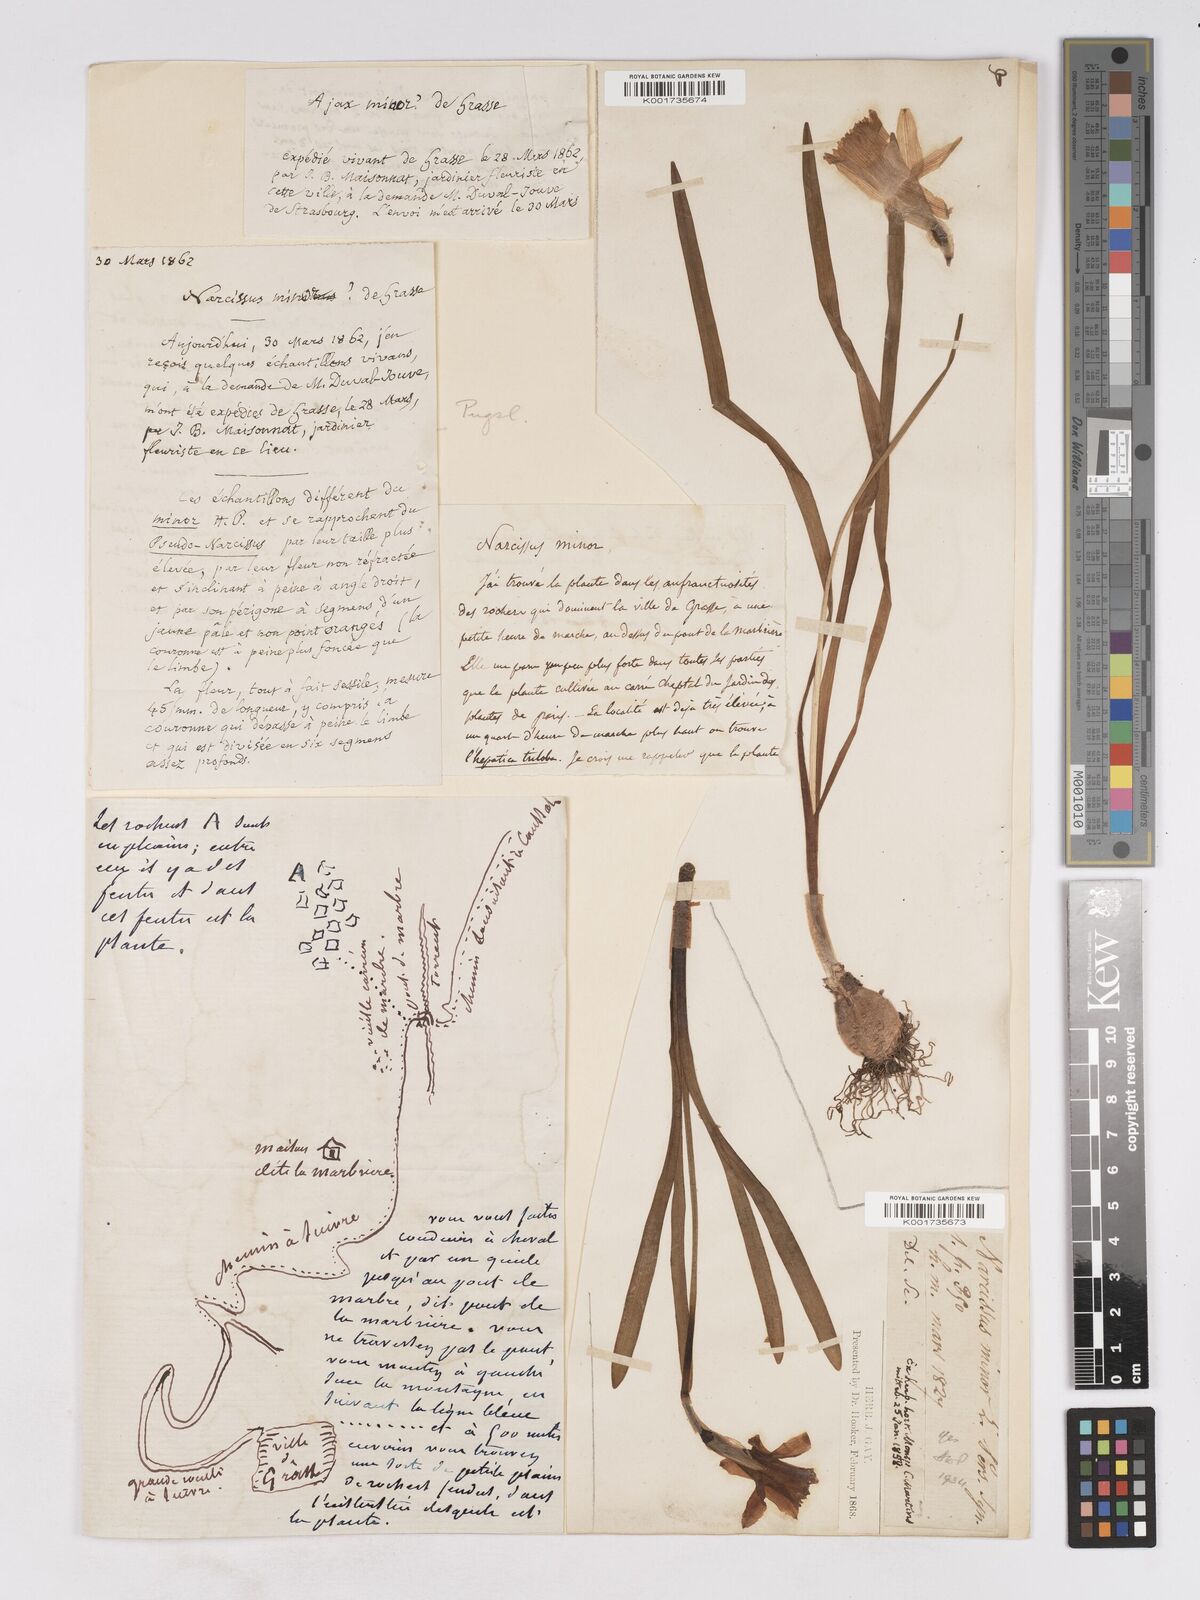 ROYAL BOTANIC GARDENS KEW
K001735674
Ajax minor? de Grasse
expédié vivant de Grasse le 28 Mars 1862,
par J. B. Maisonnat, jardinier fleuriste en
cette ville, à la demande M. Duval-Jouve
de Strasbourg. L'envoi m'est arrivé le 30 Mars
30 Mars 1862
Narcissus minor ? de Grasse
Aujourdhui, 30 Mars 1862, j'en
reçois quelques échantillons vivans,
qui, à la demande de M. Duval-Jouve,
m'ont été expédiés de Grasse, le 28 Mars,
par J. B. Maisonnat, jardinier
fleuriste en ce lieu.
Les échantillons différent du
minor H.P. et se rapprochent du
Pseudo-Narcissus par leur taille plus
élevée, par leur fleur non réfractée
et s'inclinant à peine à angle droit,
et par son périgone à segmens d'un
jaune pâle et non point orangés (la
couronne est à peine plus foncée que
le limbe).
La fleur, tout à fait sessile, mesure
45 mm. de longueur, y compris la
couronne qui dépasse à peine le limbe
et qui est divisée en six segmens
assez profonds.
Pugsl.
Narcissus minor.
J'ai trouvé la plante dans les anfractuosités
des rochers qui dominent la ville de Grasse, à une
petite heure de marche, au dessus du pont de la marbrière
Elle un peu plus forte dans toutes les parties
que la plante cultivée au carré Cheptal du Jardin des
plantes de paris. - La localité est déjà très élevée, à
un quart d'heure de marche plus haut on trouve
l'hepatica triloba. Je crois me rappeler que la plante
Les rochers A sont
en plains; entre
eux il y a des
fentes et dans
ces fentes est la
plante.
A
vieille carrière
de marbre.
pont de marbre
Torrent
chemin
maison
dite la marbriere
chemin à suivre
grande route
à suivre.
ville
de
Grasse
vous vous faites
conduire à cheval
et par un guide
jusqu'au pont de
marbre, dit pont de
la marbriere. vous
ne traversez pas le pont,
vous montez à gauche
sur la montagne, en
suivant la ligne bleue
.......... et à 500 metres
environs vous trouvez
une sorte de petite plaine
de rochers fendus, dans
l'interstice desquels est
la plante.
ROYAL BOTANIC GARDENS KEW
K001735673
Narcissus minor L. Syn.
1. p. 290
h. m. mars 1824
De. Se.
Ex herb. hort. Monsp. C. Martins
misit 25 Jan. 1858.
yes
1931
HERB. J. GAY.
Presented by Dr. Hooker, February 1868.
Density
Don Williams
inches
centimetres
M001010
Kew
copyright reserved
0 1 2 3 4 5 6 7 8 9 10 cm